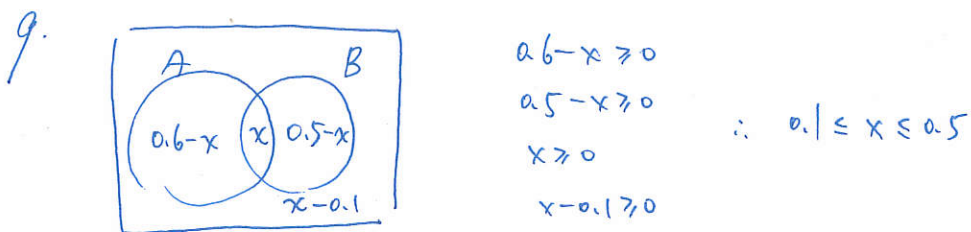 9.
A B
0.6-x x 0.5-x
x-0.1
0.6-x ≥ 0
0.5-x ≥ 0
x ≥ 0
x-0.1 ≥ 0
∴ 0.1 ≤ x ≤ 0.5